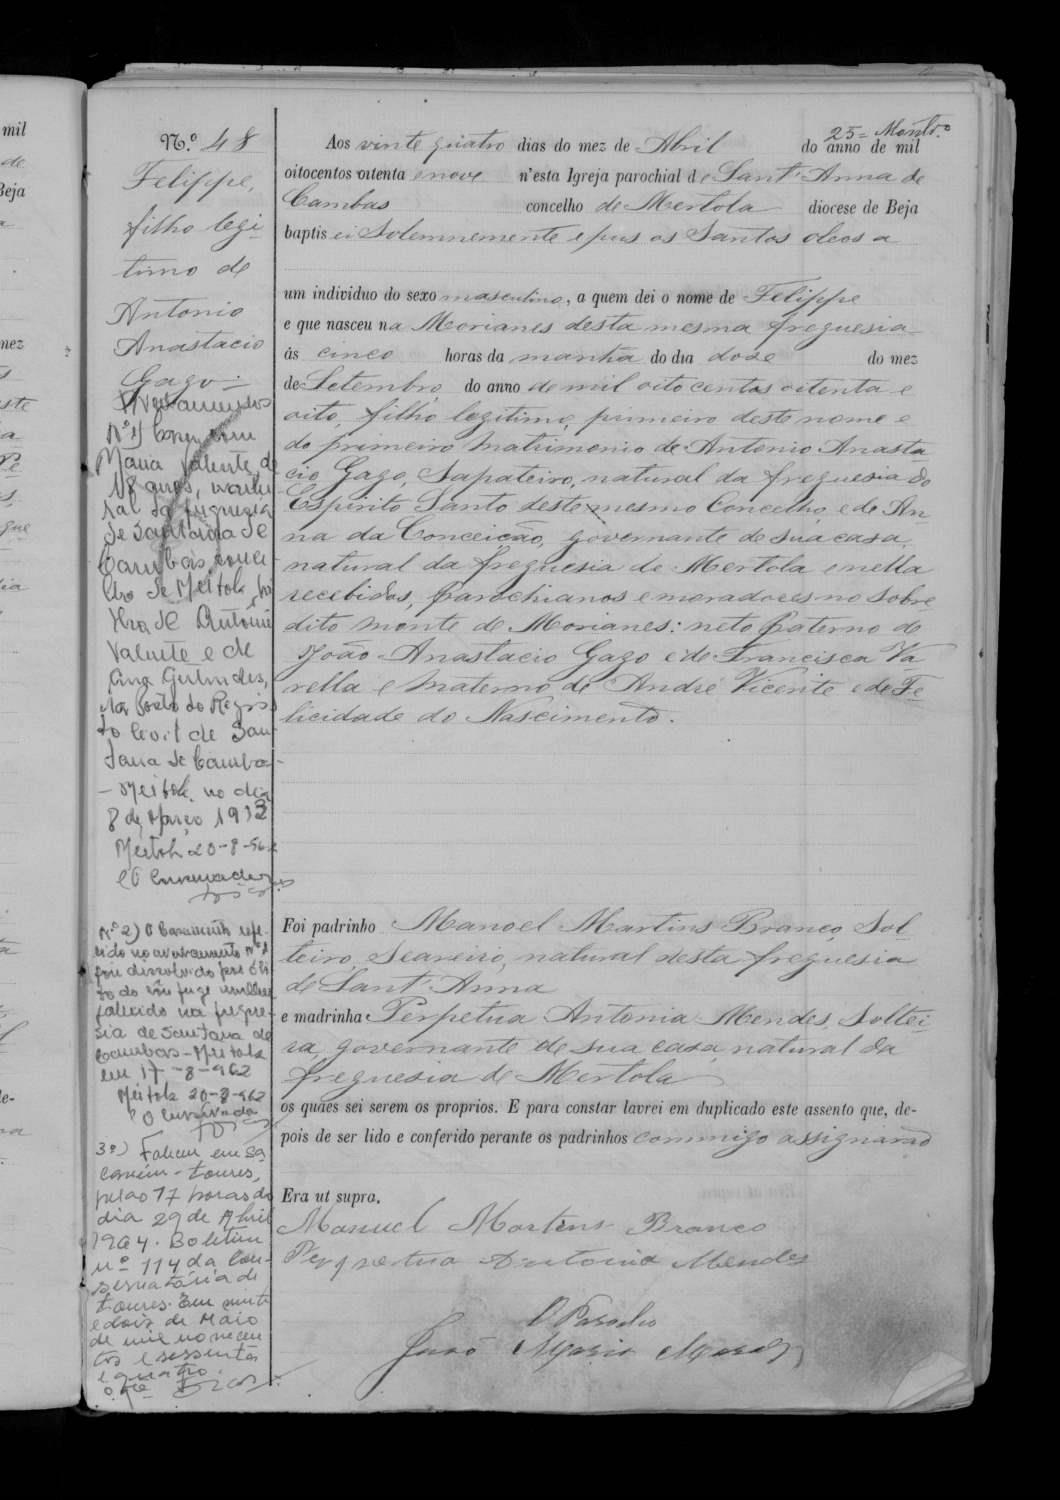 25= Montr.º
N.º 48
Felippe,
filho legi-
timo de
Antonio
Anastacio
Gago.=
Averbamentos
Nº 1) Casou com
Maria Valente, de
18 anos, natu
ral da freguesia
de Santana de
Cambas, conce
lho de Mertola, fi
lha de Antonio
Valente e de
no Posto do Regis
to Civil de San
tana de Camba
- Mertola, no dia
8 de Março 1912
Mertola 20-8-962
O Conservador
Nº 2) O Casamento refe-
rido no averbamento nº 1
foi dissolvido por óbi
to do cônjuge mulher
falecido na fregue-
sia de Santana de
Cambas - Mertola
em 17-8-962
Mertola 20-8-962
O Conservador
3º) Faleceu em Sa
cavém - Loures,
pelas 17 horas do
dia 29 de Abril
1964. Boletim
nº 114 da Con-
servatória de
Loures. Em vinte
e dois de Maio
de mil novecen
tos e sessenta
e quatro.
Aos vinte quatro dias do mez de Abril do anno de mil
oitocentos oitenta e nove n'esta Igreja parochial de Sant'Anna de
Cambas concelho de Mertola diocese de Beja
baptisei Solemnemente e pus os Santos oleos a
um individuo do sexo masculino, a quem dei o nome de Felippe
e que nasceu na Morianes desta mesma freguesia
ás cinco horas da manhã do dia dose do mez
de Setembro do anno de mil oitocentos oitenta e
oito, filho legitimo, primeiro deste nome e
do primeiro matrimonio de Antonio Anasta
cio Gago, Sapateiro, natural da freguesia do
Espirito Santo deste mesmo Concelho, e de An-
na da Conceicão, governante de sua casa,
natural da freguesia de Mertola e nella
recebidos, parochianos e moradores no sobre
dito monte de Morianes: neto paterno de
João Anastacio Gago e de Francisca Va
rella e materno de André Vicente e de Fe-
licidade do Nascimento.
Foi padrinho Manoel Martins Branco, Sol-
teiro, Seareiro, natural desta freguesia
de Sant'Anna
e madrinha Perpetua Antonia Mendes, Soltei-
ra, governante de sua casa, natural da
freguesia de Mertola
os quaes sei serem os proprios. E para constar lavrei em duplicado este assento que, de-
pois de ser lido e conferido perante os padrinhos commigo assignarão
Era ut supra.
Manuel Martins Branco
Perpetua Antonia Mendes
O Parocho